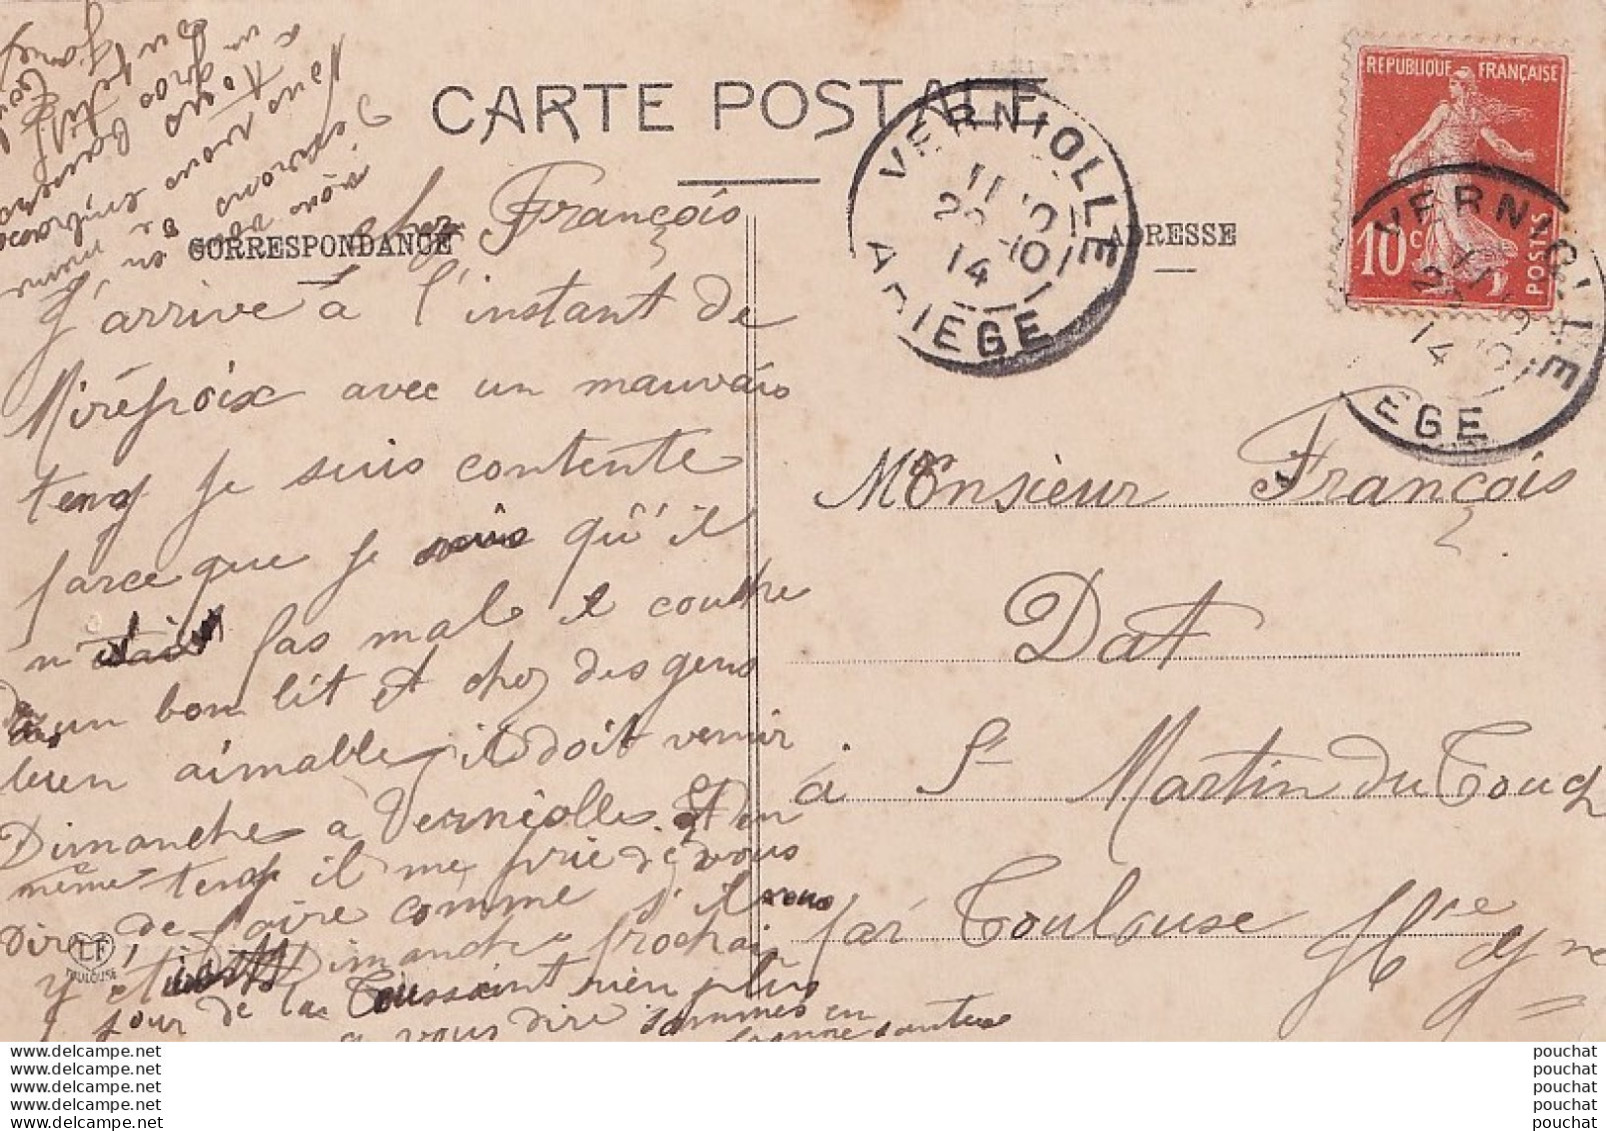 CARTE POSTALE
CORRESPONDANCE
ADRESSE
REPUBLIQUE FRANÇAISE
10c POSTES
VERNIOLLE
14
ARIEGE
VERNIOLLE
14
EGE
chez François
J'arrive à l'instant de
Mirépoix avec un mauvais
temp je suis contente
parce que je qu'il
n'était pas mal il couche
un bon lit et chez des gens
bien aimable il doit venir
Dimanche a Verniolle Et en
même temp il me prie de vous
dire de faire comme s'il vous
y était Dimanche prochain
jour de la Toussaint rien plus
a vous dire sommes en
bonne santee
Nous vous embrasson
Monsieur François
Dat
à St Martin du Touch
par Toulouse Hte Gne
LF
TOULOUSE
www.delcampe.net
www.delcampe.net
www.delcampe.net
www.delcampe.net
www.delcampe.net
pouchat
pouchat
pouchat
pouchat
pouchat